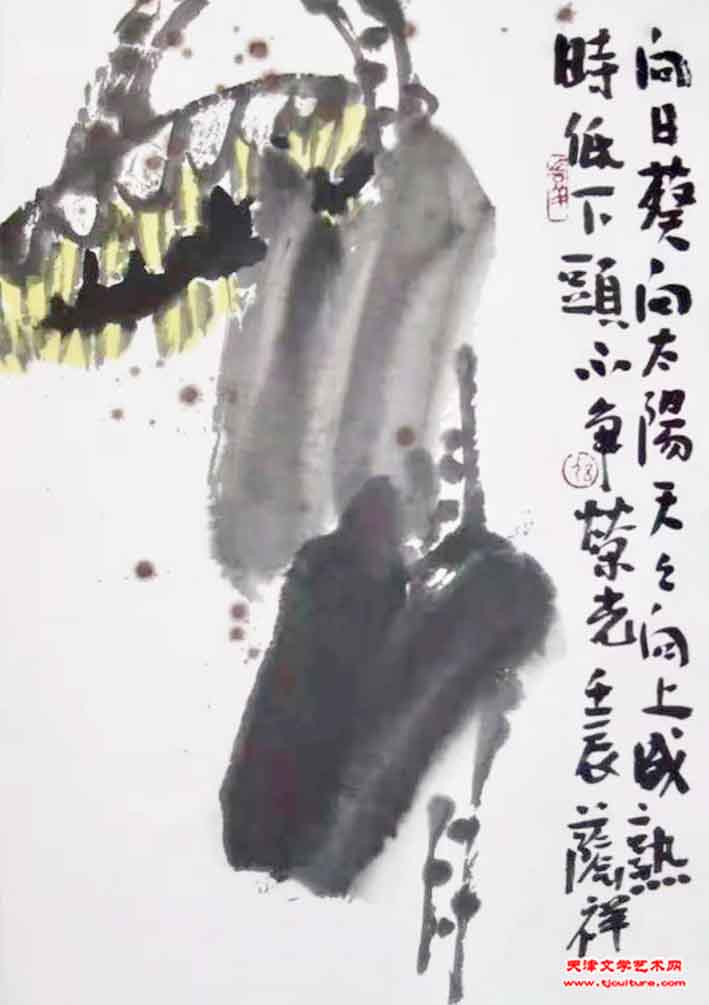 向日葵向太陽天々向上成熟
時低下頭不争榮光壬辰蔭祥
天津文学艺术网
www.tjculture.com